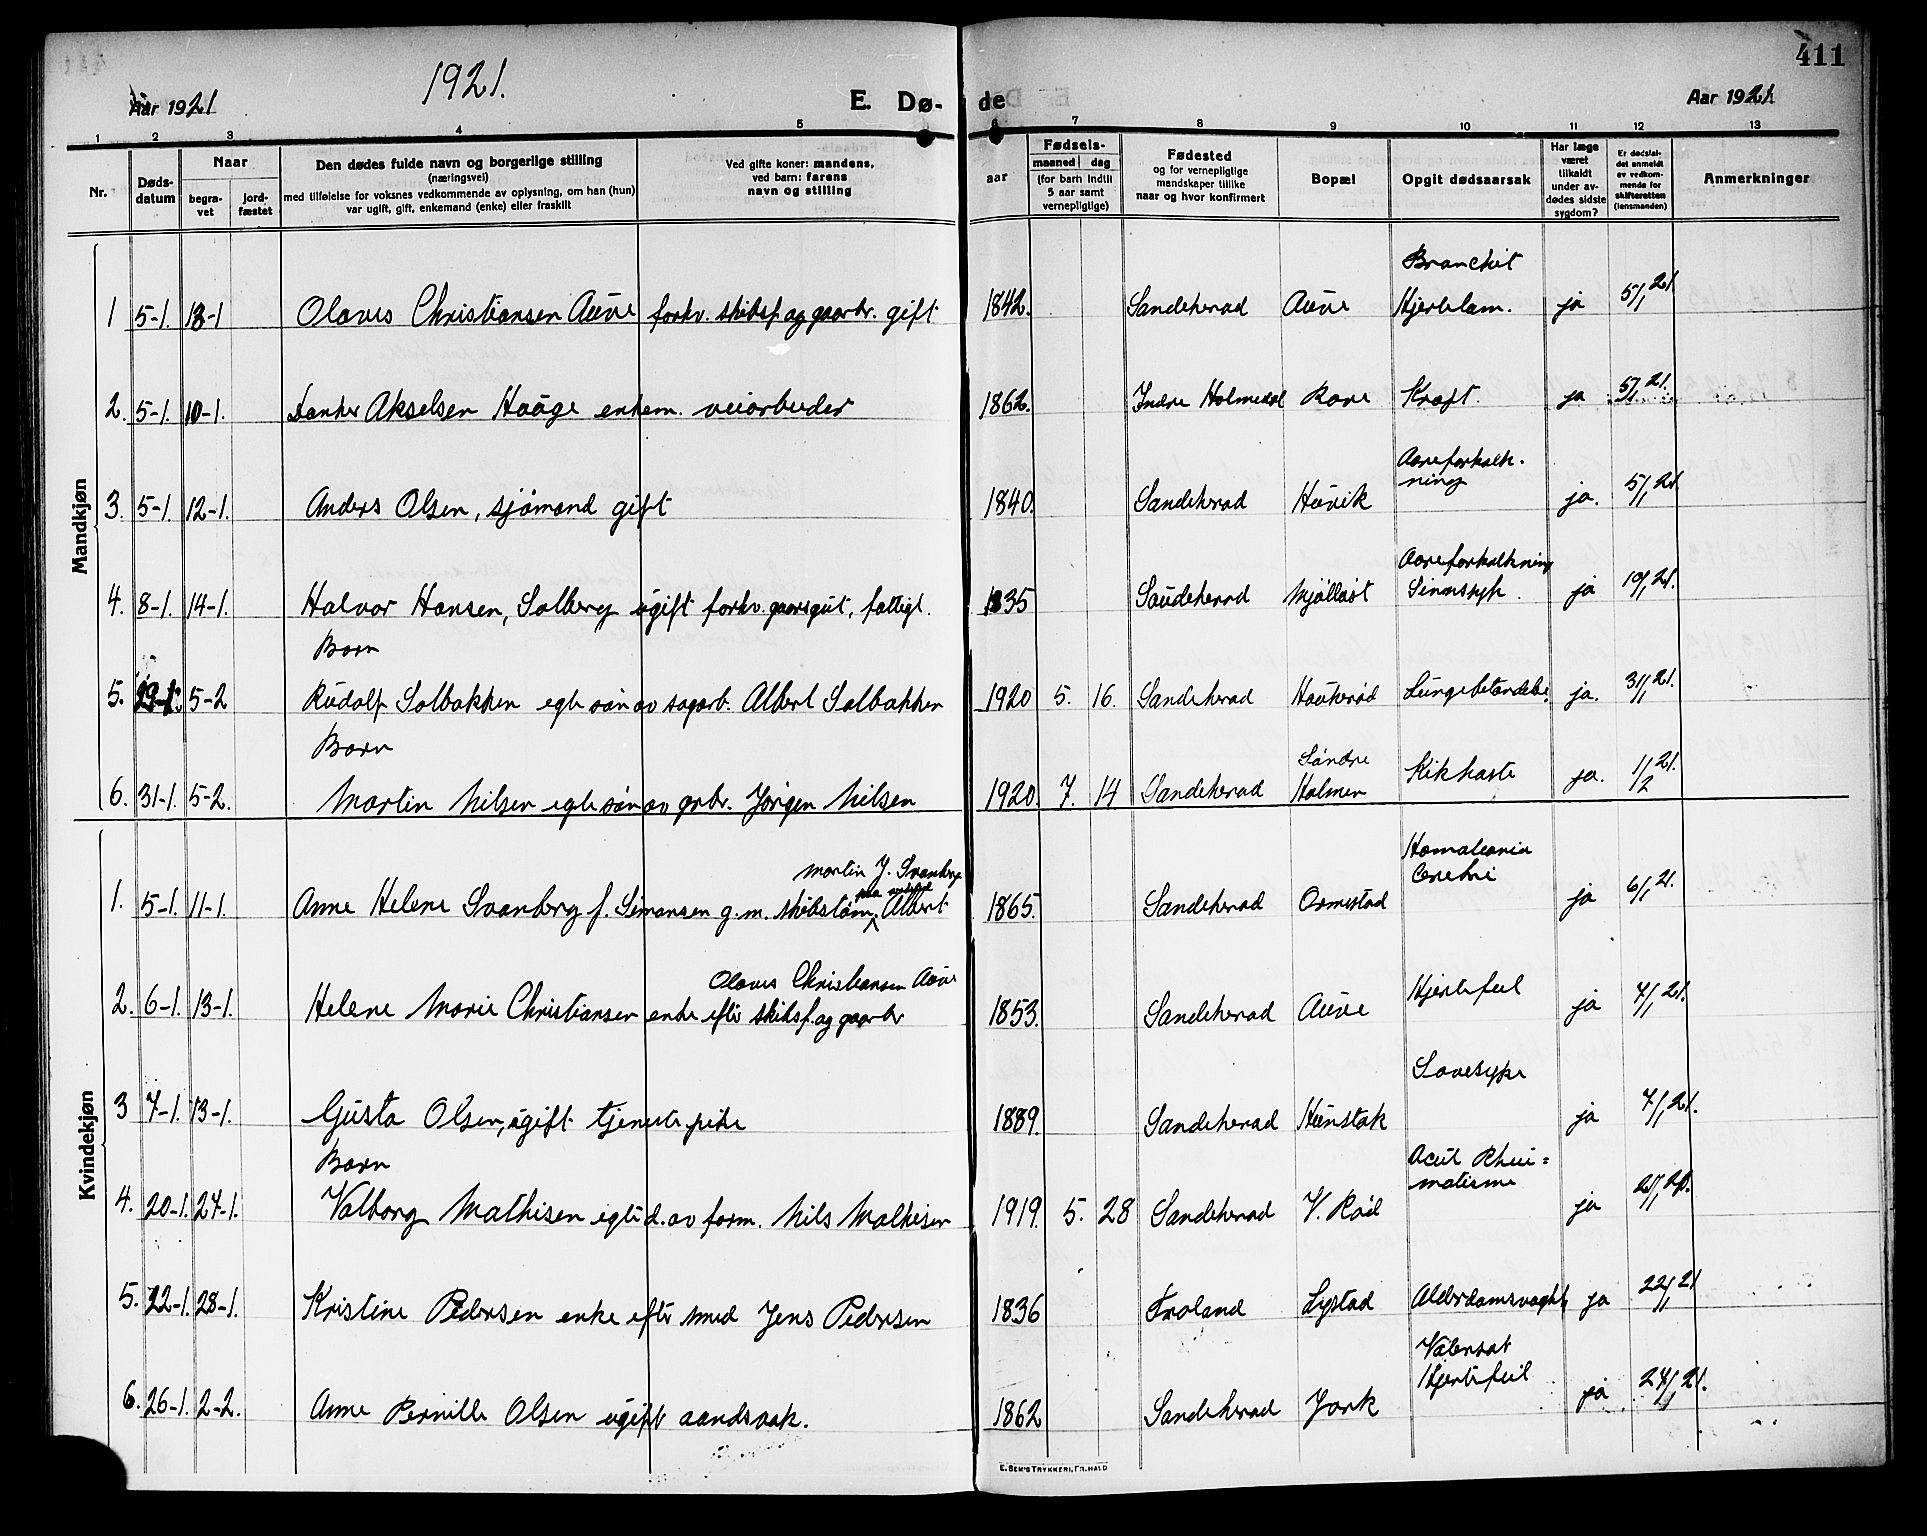 411
1921.
Aar 1921
E. Dø- de
Aar 1921
1 2 3 4 5 6 7 8 9 10 11 12 13
Nr.
Døds-
datum
Naar
begra-
vet
jord-
fæstet
Den dødes fulde navn og borgerlige stilling
(næringsvei)
med tilføielse for voksnes vedkommende av oplysning, om han (hun)
var ugift, gift, enkemand (enke) eller fraskilt
Ved gifte koner: mandens,
ved barn: farens
navn og stilling
aar
Fødsels-
maaned dag
(for barn indtil
5 aar samt
vernepligtige)
Fødested
og for vernepligtige
mandskaper tillike
naar og hvor konfirmert
Bopæl
Opgit dødsaarsak
Har læge
været
tilkaldt
under av-
dødes sidste
sygdom?
Er dødsfal-
det anmeldt
av vedkom-
mende for
skifteretten
(lensmanden)
Anmerkninger
Mandkjøn
Bronchit
1 5-1. 13-1 Olaves Christiansen Auve forhv. skibsf. og gaarbr. gift 1842. Sandeherad Auve Hjertelam. ja 5/1 21
2. 5-1. 10-1. Akselsen Haage enkem. veiarbeider 1862. Indre Holmedal Kræft. ja 5/1 21.
Aareforkalk-
ning
3. 5-1. 12-1. Anders Olsen, sjømand gift 1840. Sandeherad ja. 5/1 21
Aareforkalkning
4. 8-1. 14-1. Halvor Hansen, Solberg ugift forhv. gaardsgut, fattigl. 1835 Sandeherad Mjølløst Sinnssyk. ja 10/1 21.
Barn
5. 5-2 Rudolf Solbakken egte søn av sagarb. Albert Solbakken 1920 5. 16. Sandeherad Haukerød Lungebetændelse. ja. 31/1 21.
Barn
Søndre
6. 31-1. 5-2. Martin Nilsen egte søn av grbr. Jørgen Nilsen 1920. 7. 14 Sandeherad Holmen Kikhoste ja. 1/2 21.
Kvindekjøn
Martin J. Svanberg
Cerebri
1. 5-1. 11-1. Anne Helene Svanberg f. Simonsen g.m. skibstøm. Albert 1865. Sandeherad Ormestad ja 6/1 21.
Olaves Christiansen Auve
2. 6-1. 13-1. Helene Marie Christiansen enke efter skibsf. og gaarbr 1853. Sandeherad Auve Hjertefeil ja 7/1 21.
Sovesyke
3 7-1. 13-1. Gusta Olsen, ugift tjenestepike 1889. Sandeherad Hunstok ja 7/1 21.
Barn
Acut Rheu=
matisme
4. 20-1. 27-1. Valborg Mathisen egte d. av form. Nils Mathisen 1919. 5. 28 Sandeherad V. Rød ja 21/1 21.
5. 22-1. 28-1. Kristine Pedersen enke efter smed Jens Pedersen 1836 Froland Lystad Alderdomsvaghet ja 22/1 21
Vatersot
Hjertefeil
6. 26-1. 2-2. Anne Pernille Olsen ugift aandsvak. 1862 Sandeherad York ja 27/1 21.
E. SEM'S TRYKKERI, FR.HALD